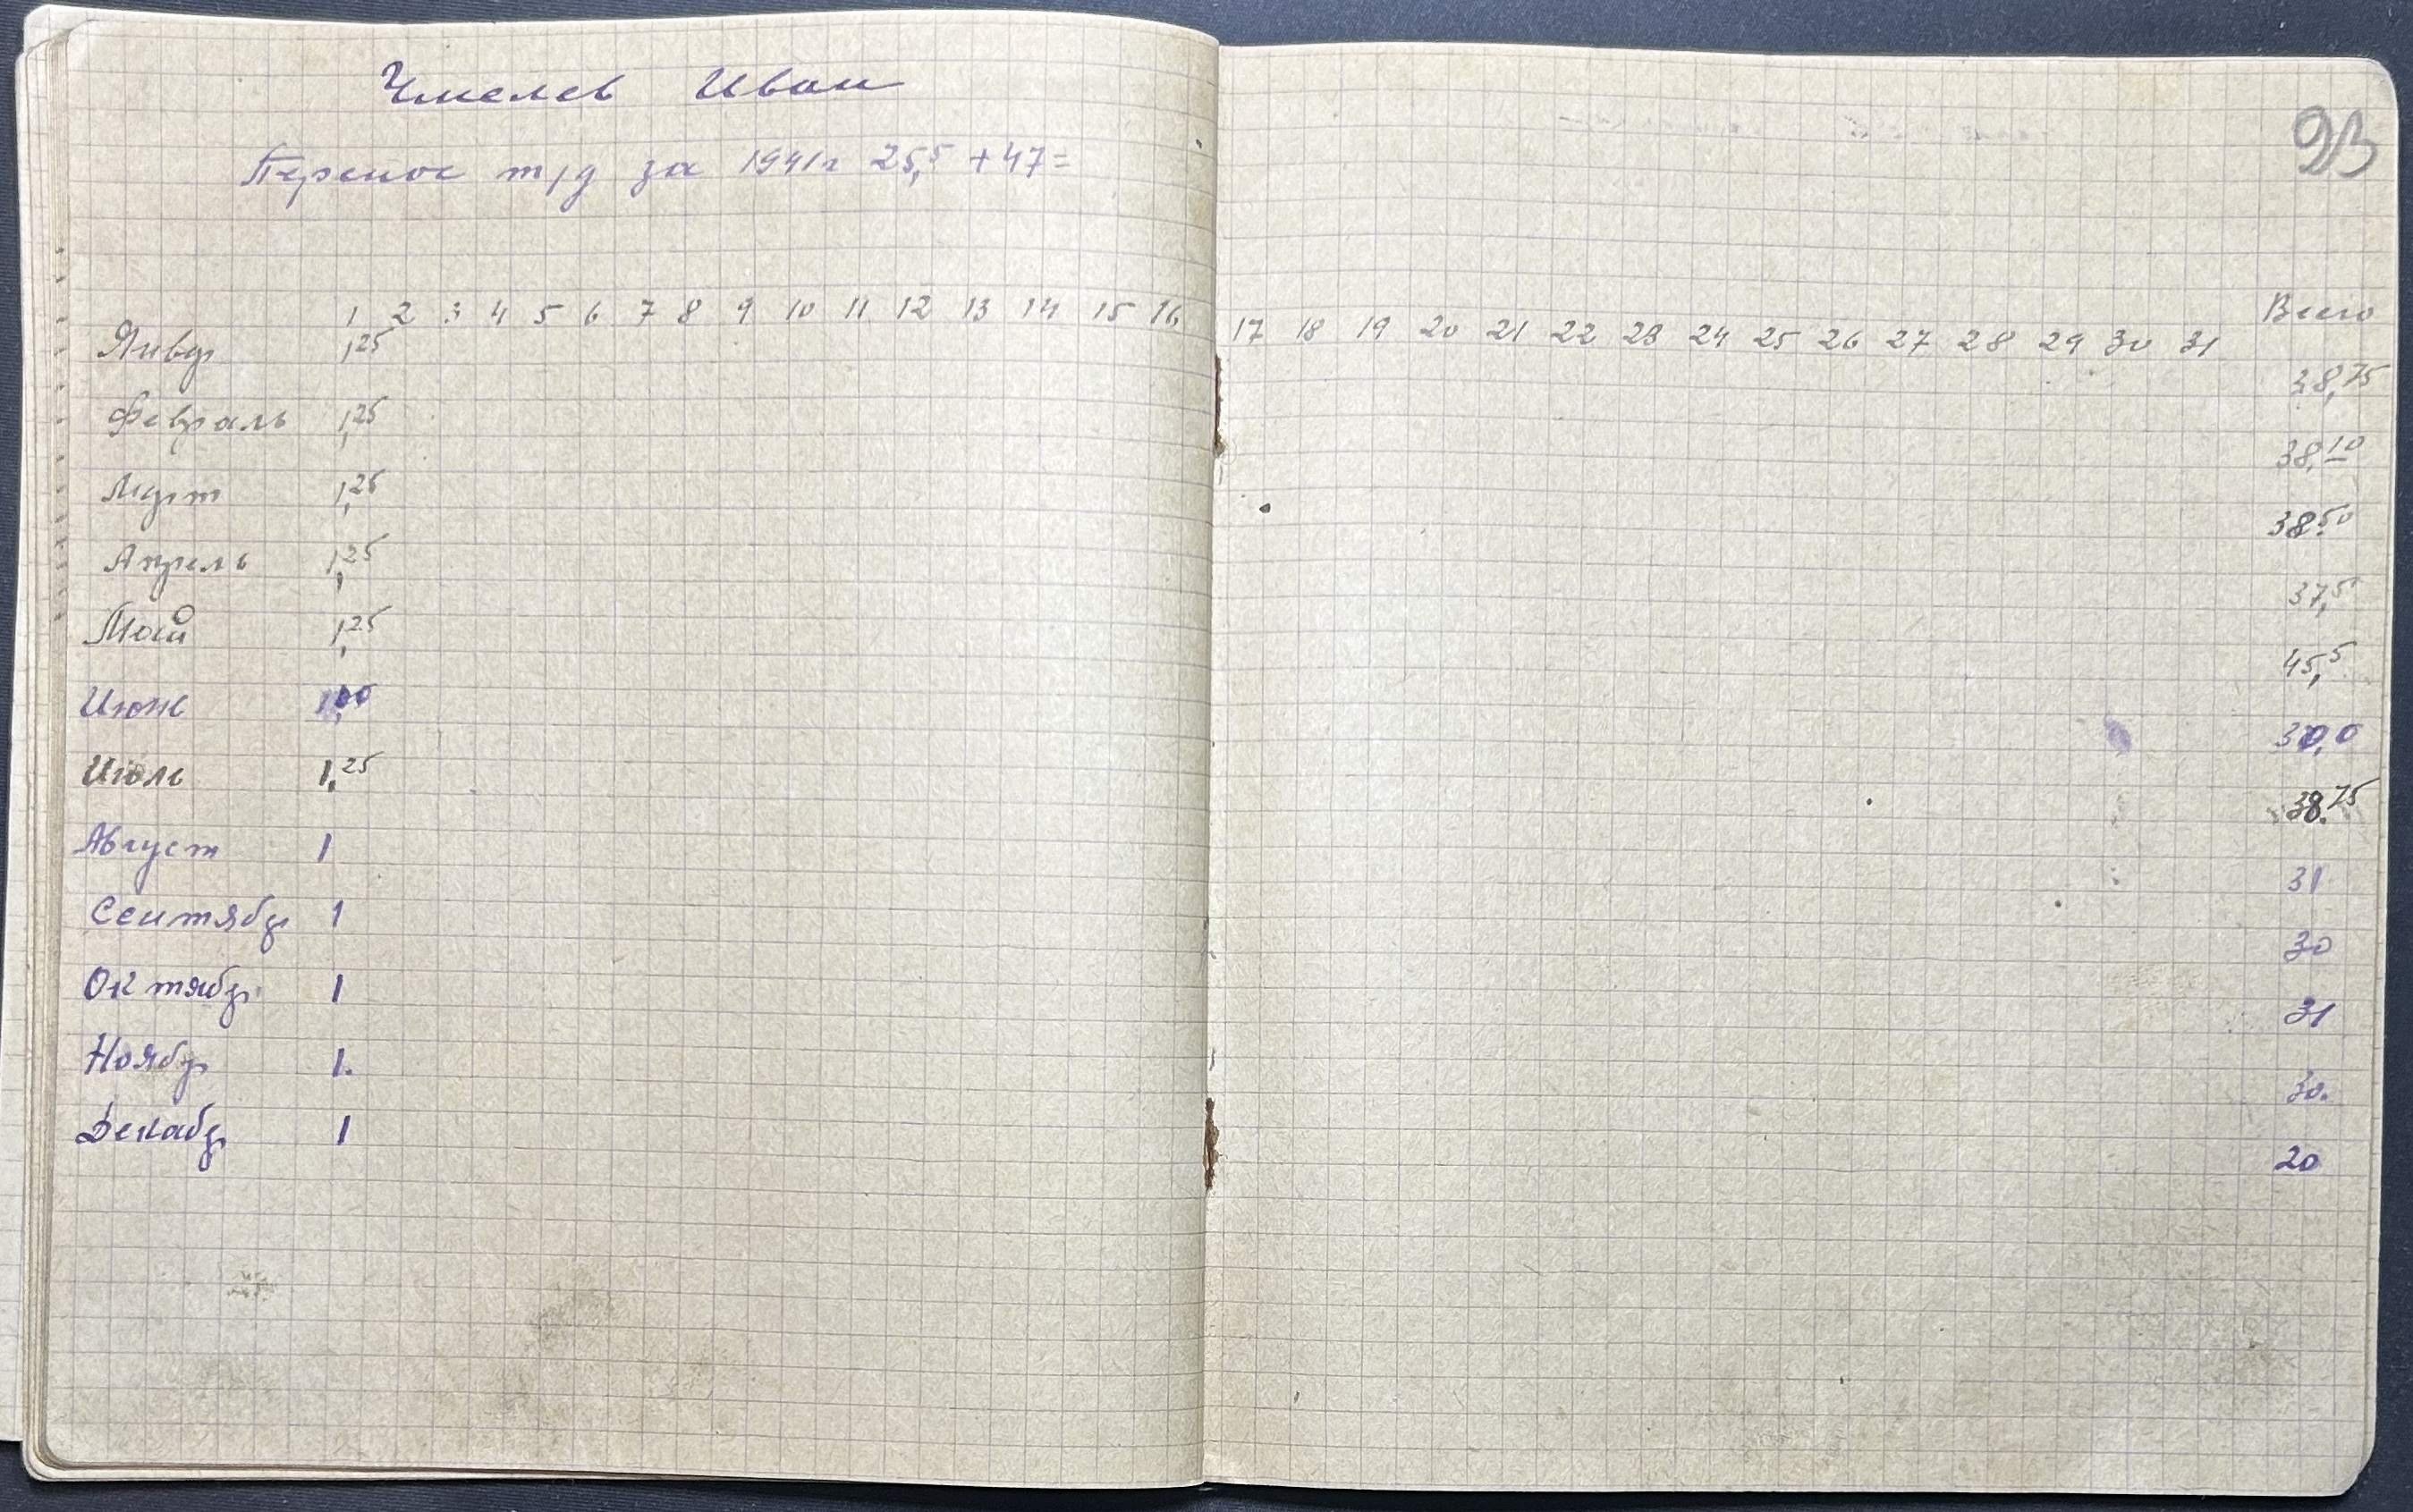 Чмелев Иван
23
Перенос т/д за 1941г 25,5 + 47 =
1 2 3 4 5 6 7 8 9 10 11 12 13 14 15 16 17 18 19 20 21 22 23 24 25 26 27 28 29 30 31 Всего
Январ 1,25 38,75
Февраль 1,25 38,10
Март 1,25 38,50
Апрель 1,25 37,5
Май 1,25 45,5
Июнь 1,00 30,0
Июль 1,25 38,75
Август 1 31
Сентябр 1 30
Октябр 1 31
Ноябр 1. 30.
Декабр 1 20